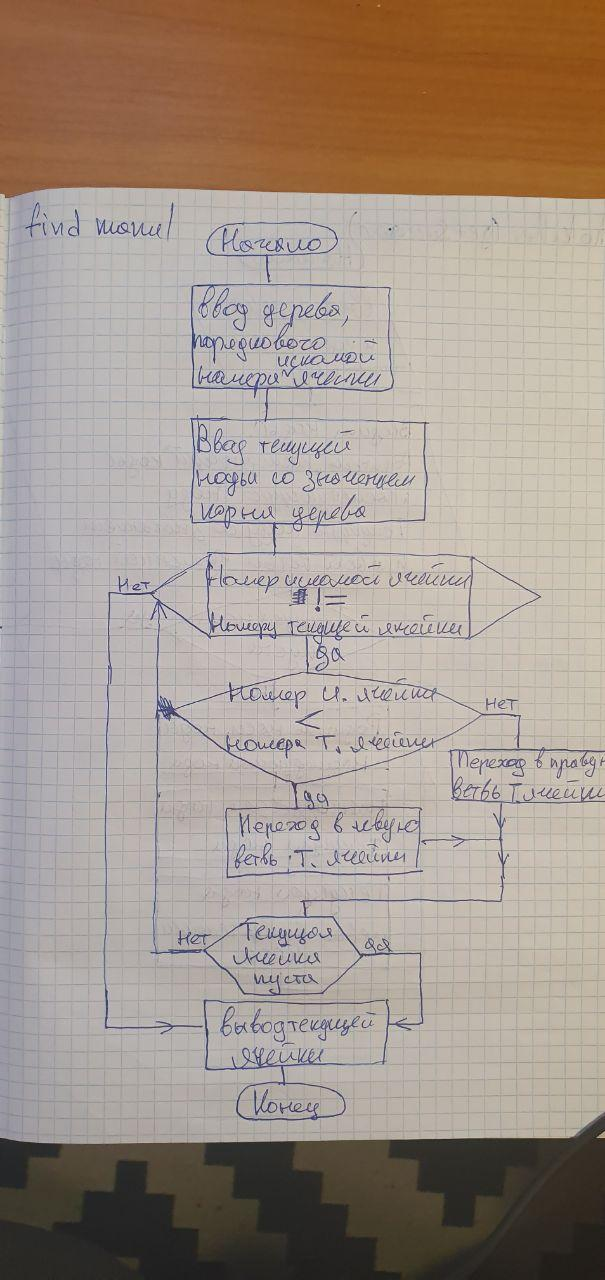 find manul
Начало
Ввод дерева,
порядкового
искомой
номера ячейки
Ввод текущей
ноды со значением
корня дерева
Нет
Номер искомой ячейки
!=
Номеру текущей ячейки
да
Номер И. ячейки
<
номера Т. ячейки
Нет
Переход в праву
ветвь Т.ячейки
да
Переход в левую
ветвь Т. ячейки
Нет
Текущая
ячейка
пуста
да
вывод текущей
ячейки
Конец